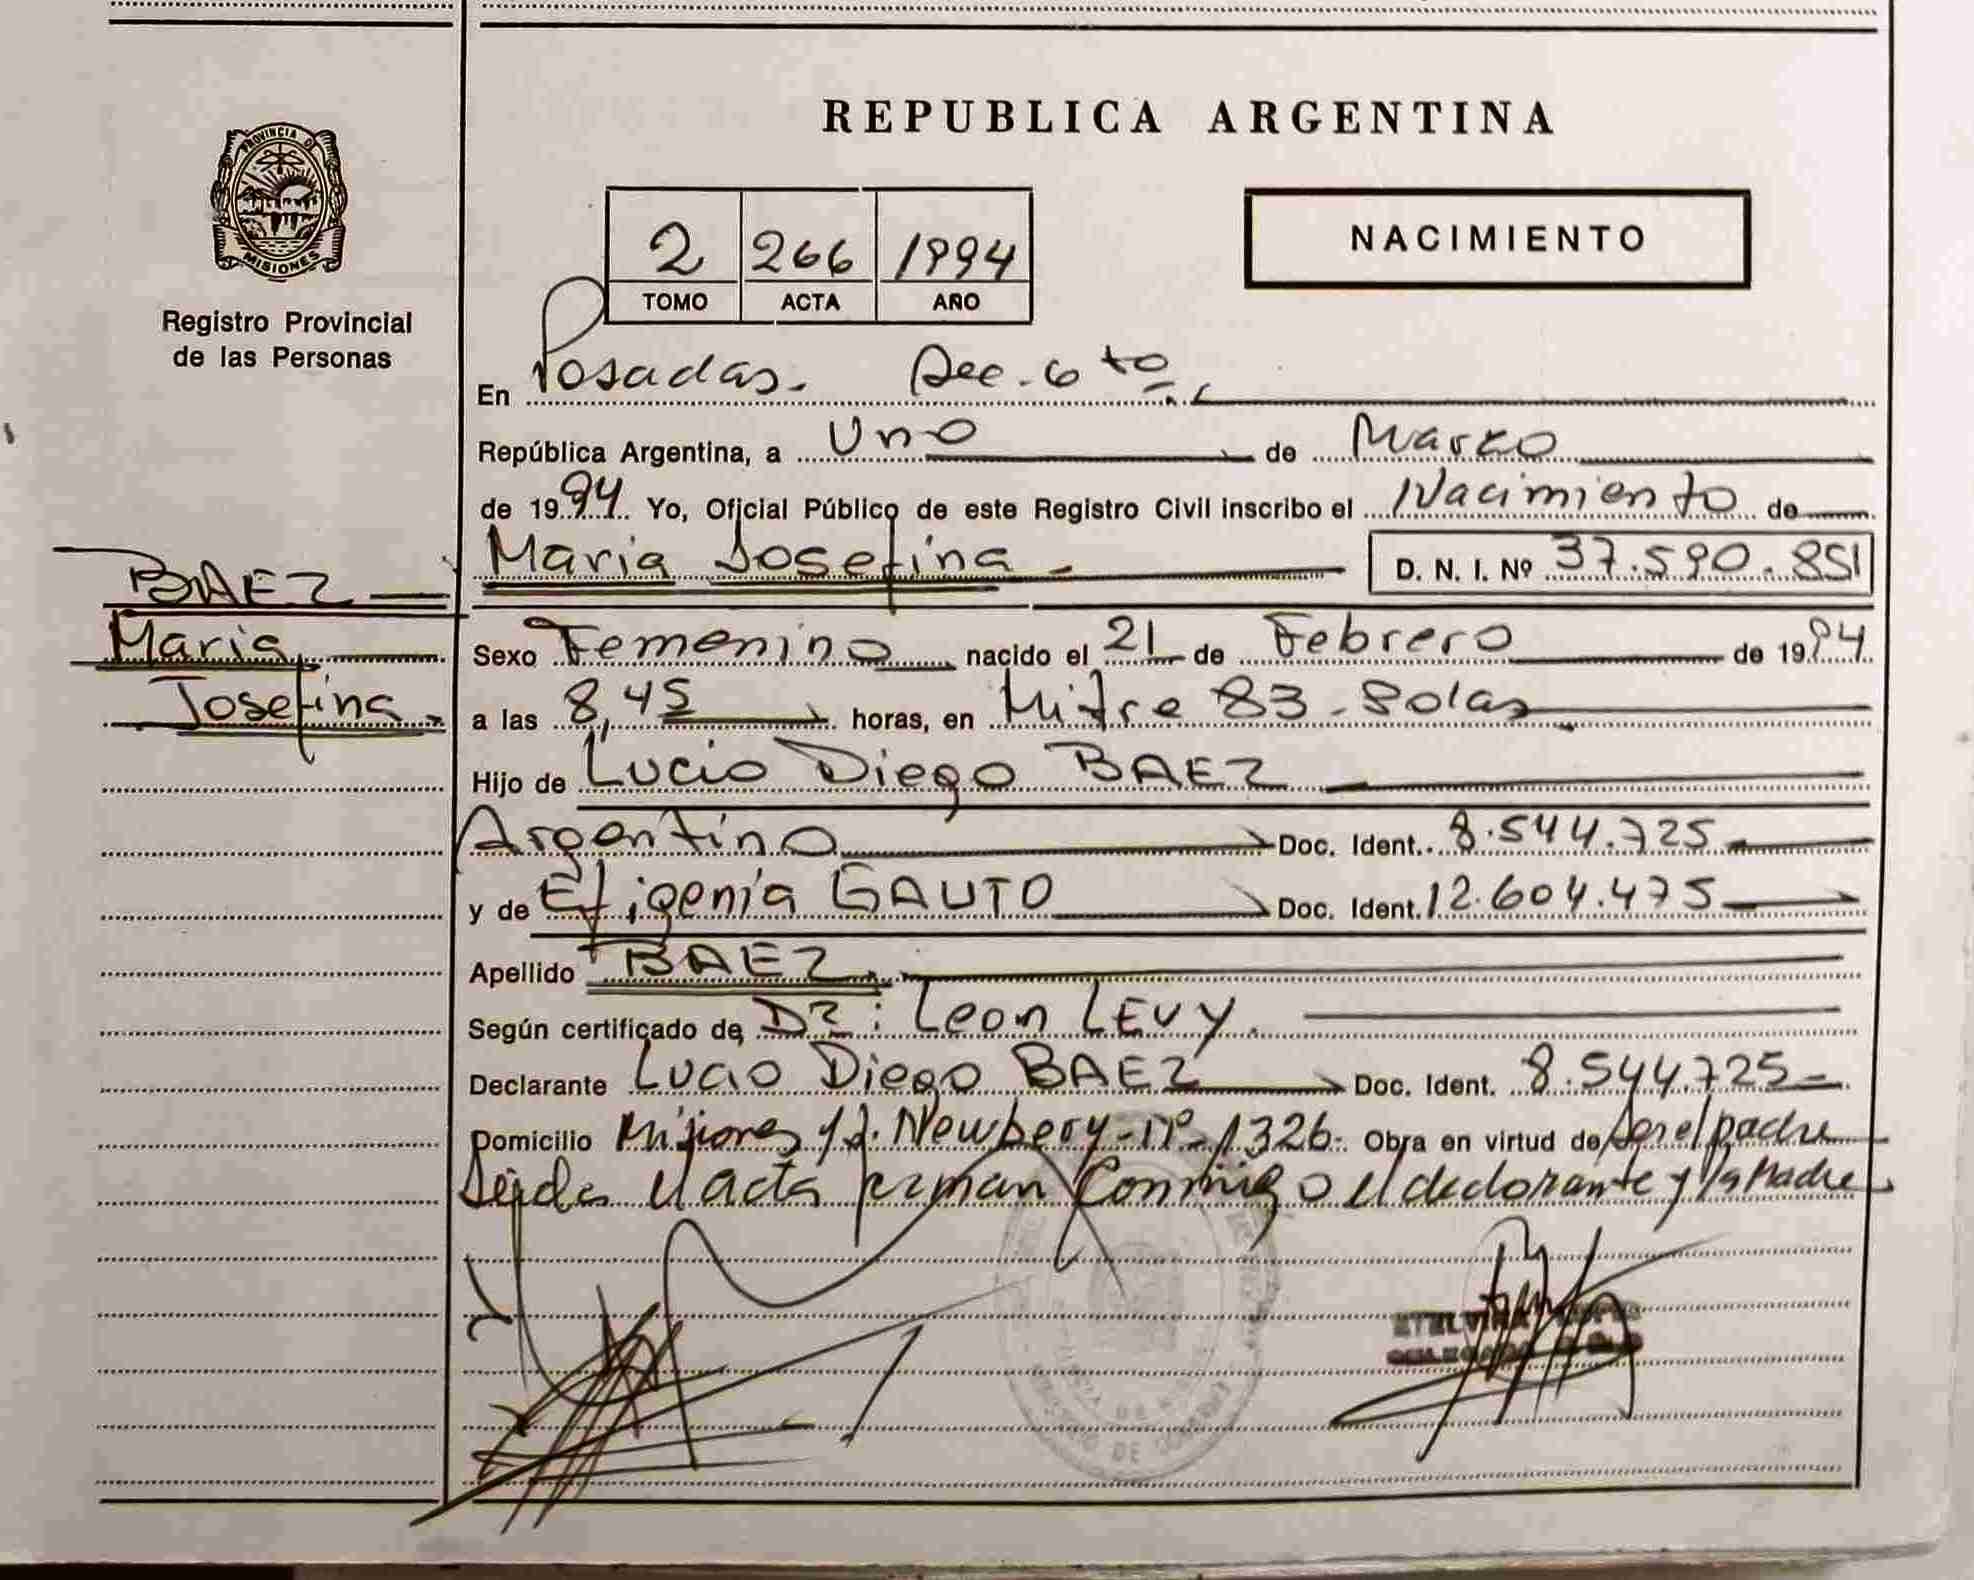 REPUBLICA ARGENTINA
PROVINCIA DE
MISIONES
Registro Provincial
de las Personas
2 266 1994
TOMO ACTA AÑO
NACIMIENTO
En Posadas. Sec. 6 to.
República Argentina, a Uno de Marzo
de 1994 Yo, Oficial Público de este Registro Civil inscribo el Nacimiento de
Maria Josefina - D. N. I. Nº 37.590.851
BAEZ
Maria
Josefina.
Sexo Femenino nacido el 21 de Febrero de 1994
a las 8,45 horas, en Mitre 83 -
Hijo de Lucio Diego BAEZ
Argentino Doc. Ident. 8.544.725
y de Efigenia GAUTO Doc. Ident. 12.604.475
Apellido BAEZ.
Según certificado de Dr: Leon LEVY.
Declarante Lucio Diego BAEZ Doc. Ident. 8.544.725-
Domicilio Misiones y J. Newbery-Nº-1326- Obra en virtud de ser el padre
Leida el acta firman Conmigo el declarante y la Madre
ETELVINA